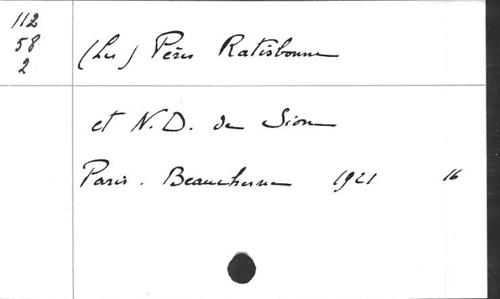 112
58
2
(Les) Pères Ratisbonne
et N.D. de Sion
Paris. Beauchesne 1921 16